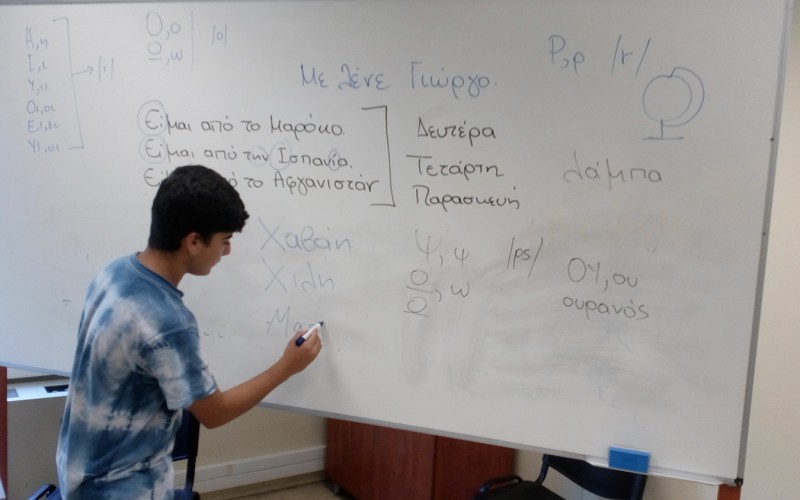 Η,η
Ι,ι
Υ,υ
Οι,οι
Ει,ει
Υι,υι
/i/
Ο,ο
Ω,ω
/o/
Με λένε Γιώργο.
Ρ,ρ /r/
Είμαι από το Μαρόκο.
Είμαι από την Ισπανία.
το Αφγανιστάν
Δευτέρα
Τετάρτη
Παρασκευή
λάμπα
Χαβάη
Χιλή
Μα
Ψ,ψ /ps/
Ω, ω
Ω
ΟΥ,ου
ουρανός